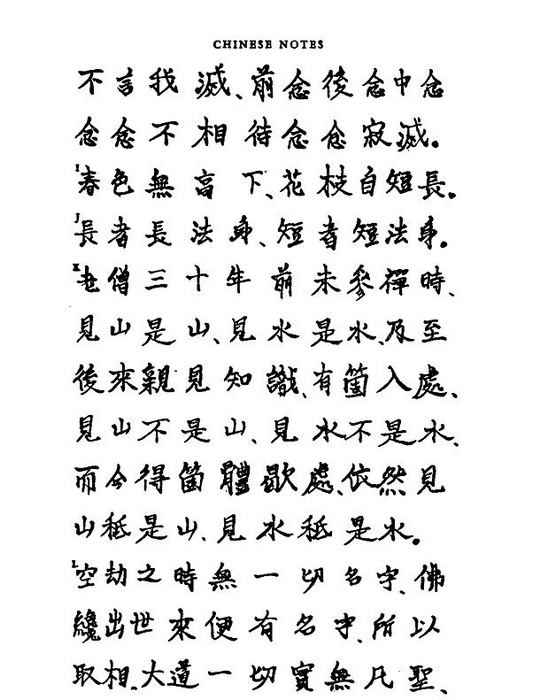 CHINESE NOTES
不言我滅、前念後念中念
念念不相待念念寂滅。
I春色無高下、花枝自短長。
J長者長法身、短者短法身。
K老僧三十年前未參禪時、
見山是山、見水是水、及至
後來親見知識、有箇入處、
見山不是山、見水不是水、
而今得箇體歇處、依然見
山秪是山、見水秪是水。
L空劫之時無一切名字、佛
纔出世來便有名字、所以
取相、大道一切實無凡聖、